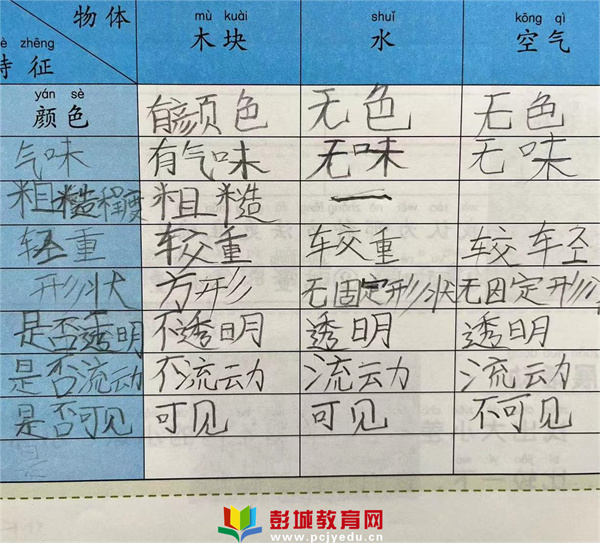 物体 mù kuài shuǐ kōng qì
zhēng 木块 水 空气
特征
yán sè
颜色 有颜色 无色 无色
气味 有气味 无味 无味
粗糙程度 粗糙 一
轻重 较重 较重 较轻
形状 方形 无固定形状 无固定形
是否透明 不透明 透明 透明
是否流动 不流动 流动 流动
是否可见 可见 可见 不可见
彭城教育网
www.pcjyedu.cn